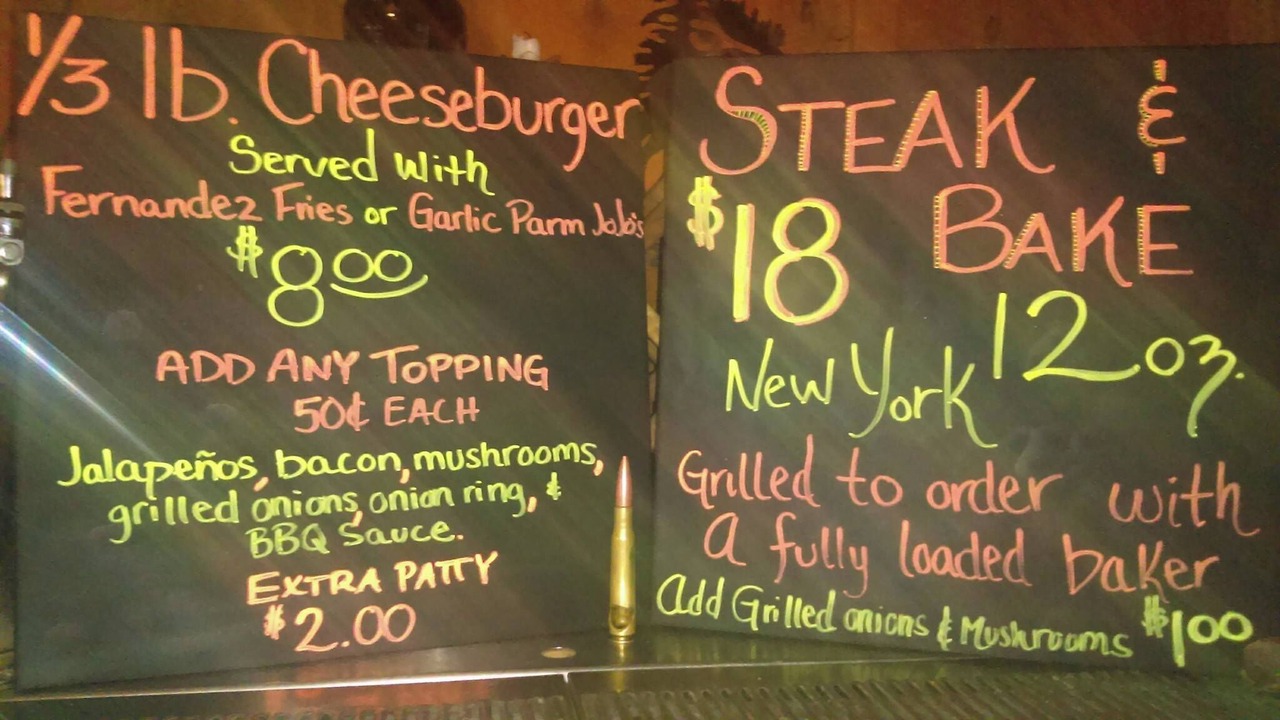 1/3 lb. Cheeseburger
Served with
Fernandez Fries or Garlic Parm JoJo's
$8.00
ADD ANY TOPPING
50¢ EACH
Jalapeños, bacon, mushrooms,
grilled onions, onion ring, &
BBQ Sauce.
EXTRA PATTY
$2.00
STEAK &
$18 BAKE
New York 12 oz.
Grilled to order with
a fully loaded baker
Add Grilled onions & Mushrooms $1.00